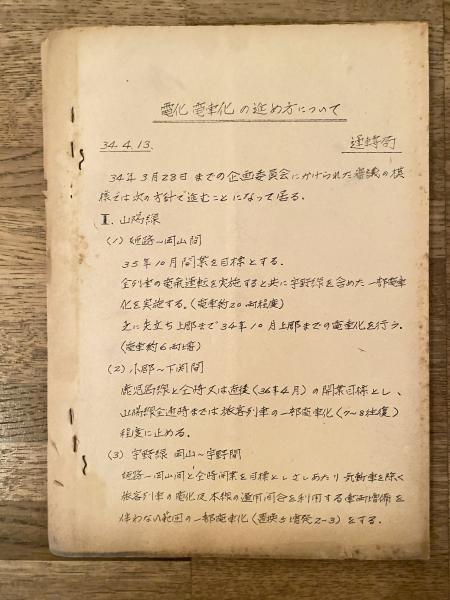 電化電車化の進め方について
34.4.13. 運転局
34年3月28日までの企画委員会にかけられた審議の模
様では次の方針で進むことになって居る。
I. 山陽線
(1) 姫路〜岡山間
35年10月開業を目標とする。
全列車の電気運転を実施すると共に宇野線を含めた一部電車
化を実施する。(電車約20両程度)
之に先立ち上郡まで34年10月上郡までの電車化を行う。
(電車約6両増)
(2) 小郡〜下関間
鹿児島線と同時又は直後(36年4月)の開業目標とし、
山陽線全通時までは旅客列車の一部電車化(7〜8往復)
程度に止める。
(3) 宇野線 岡山〜宇野間
姫路〜岡山間と同時開業を目標としさしあたり気動車を除く
旅客列車の電化及本線の運用間合を利用する車両増備を
伴わない範囲の一部電車化(置換と増発2-3)をする。